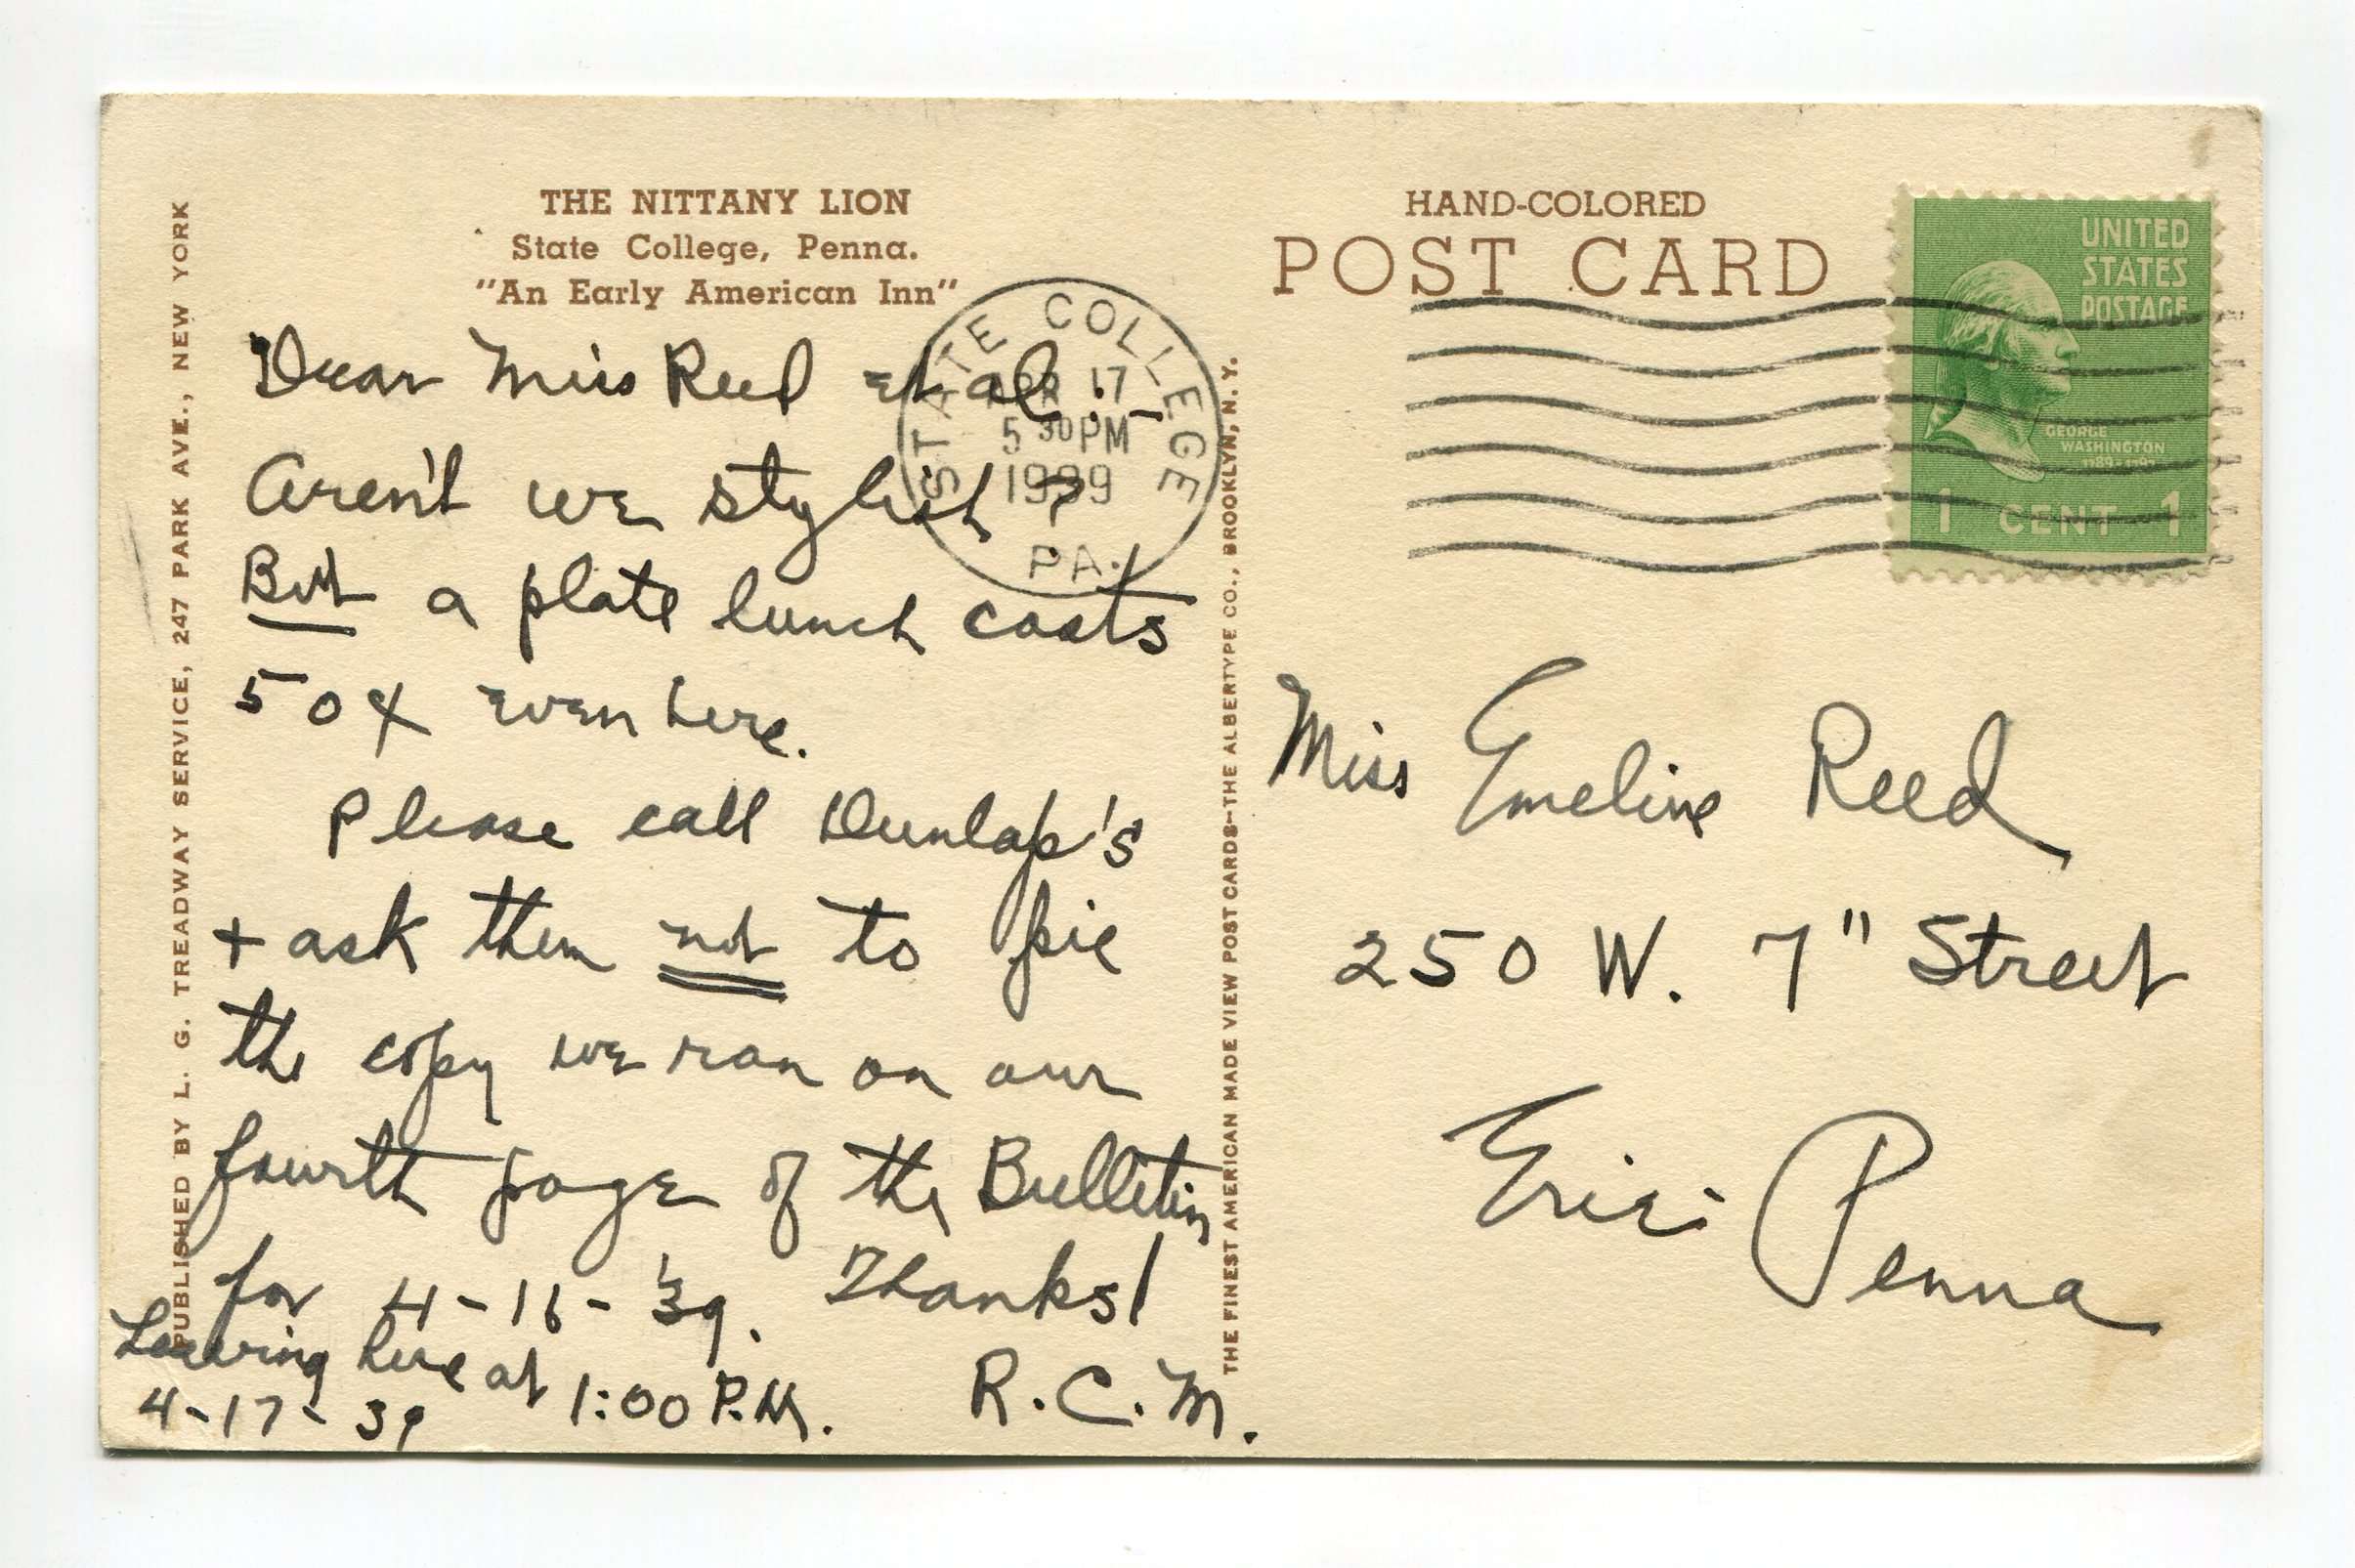 THE NITTANY LION
State College, Penna.
"An Early American Inn"
Dear Miss Reed et al:-
Aren't we stylish?
But a plate lunch costs
50¢ even here.
Please call Dunlap's
+ ask them not to pie
the copy we ran on our
fourth page of the Bulletin
for 4-16-39. Thanks!
Leaving here at 1:00 P.M.
4-17-39
R.C.M.
PUBLISHED BY L. G. TREADWAY SERVICE, 247 PARK AVE., NEW YORK
THE FINEST AMERICAN MADE VIEW POST CARDS—THE ALBERTYPE CO., BROOKLYN, N. Y.
STATE COLLEGE
APR 17
5 30 PM
1939
PA.
HAND-COLORED
POST CARD
UNITED
STATES
POSTAGE
GEORGE
WASHINGTON
1789-1797
1 CENT 1
Miss Emeline Reed
250 W. 7" Street
Erie Penna